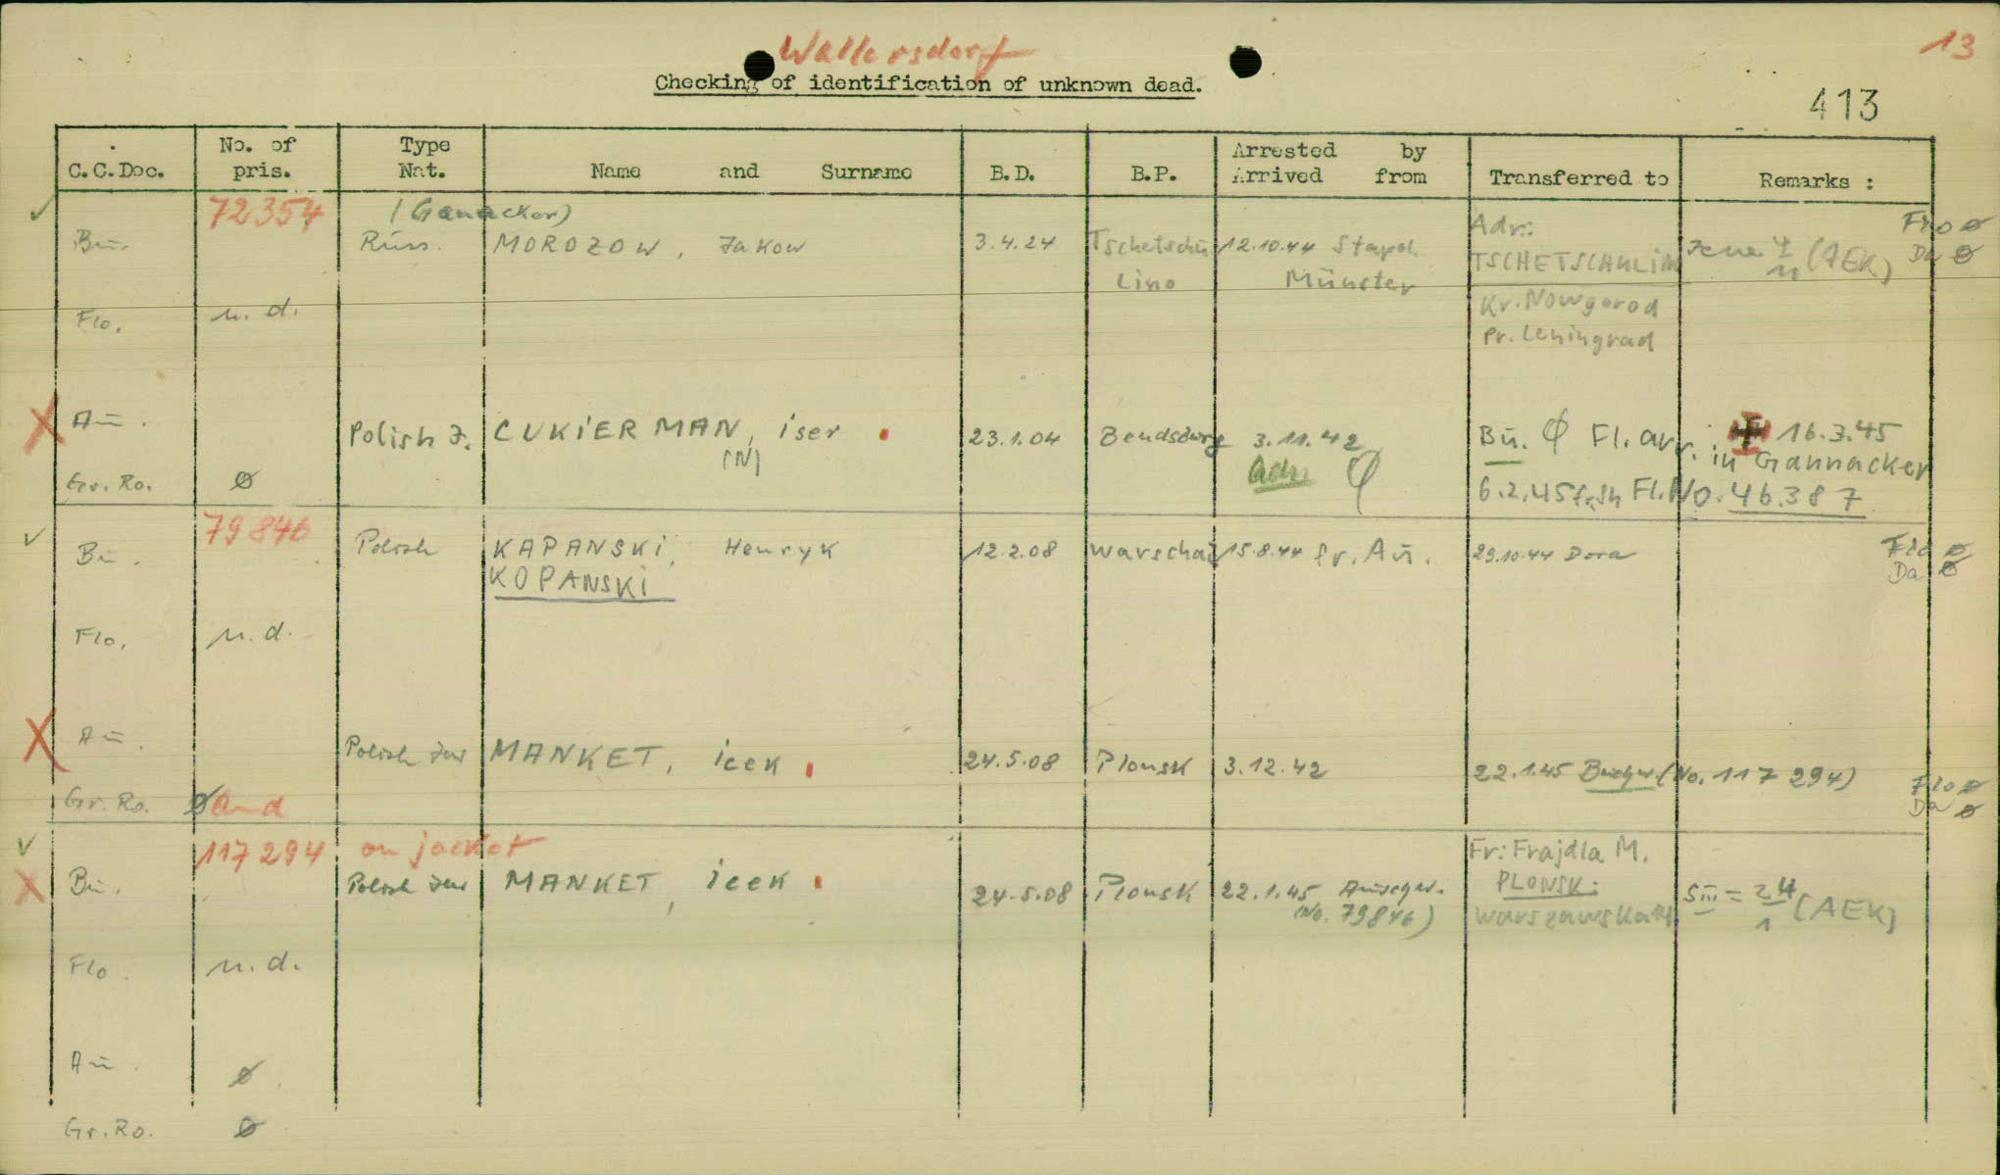 Wallersdorf
13
Checking of identification of unknown dead.
413
C.C.Doc. No. of pris. Type Nat. Name and Surname B.D. B.P. Arrested by Arrived from Transferred to Remarks :
72354 (Ganacker) Adr: Flo ø
Bu. Russ. MOROZOW, Jakow 3.4.24 Tschetschu 12.10.44 Stapol. TSCHETSCHULIN (AEK) Da ø
Lino Münster
Kr. Nowgorod
Flo. n. d. Pr. Leningrad
Au. Polish J. CUKIERMAN, iser 23.1.04 Bendsburg 3.11.42 Bu. ϕ Fl. arr. 16.3.45
(N) in Gannacker
Gr. Ro. ø ϕ 6.2.45 Fl. No. 46387
79846 Flo ø
Bu. Polish KAPANSKI, Henryk 12.2.08 Warschau 15.8.44 fr. Au. 29.10.44 Dora Da ø
KOPANSKI
Flo. n. d.
Au. Polish Jew MANKET, icek 24.5.08 Plonsk 3.12.42 22.1.45 (No. 117 294)
Flo ø
Gr. Ro. ø and Da ø
117294 on jacket Fr: Frajdla M.
Bu. Polish Jew MANKET, icek 24.5.08 Plonsk 22.1.45 PLONSK: SIII = 24/1 (AEK)
(No. 79846) Warszawska
Flo. n. d.
Au. ø
Gr. Ro. ø